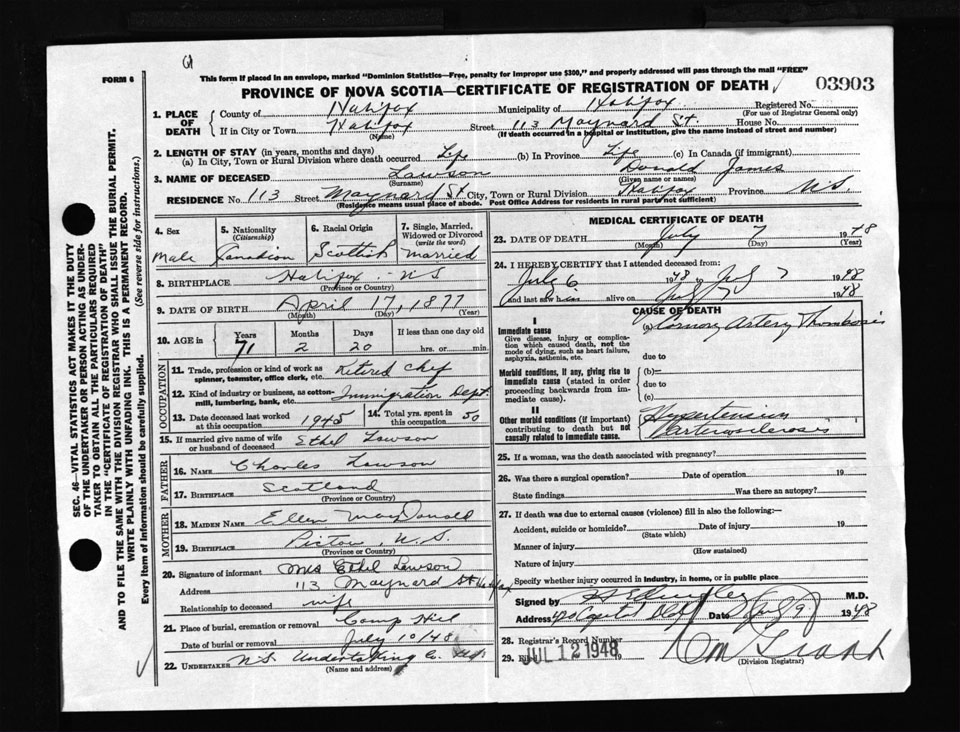 FORM 6
This form if placed in an envelope, marked "Dominion Statistics—Free, penalty for improper use $300," and properly addressed will pass through the mail "FREE"
PROVINCE OF NOVA SCOTIA—CERTIFICATE OF REGISTRATION OF DEATH
03903
SEC. 46—VITAL STATISTICS ACT MAKES IT THE DUTY
OF THE UNDERTAKER OR PERSON ACTING AS UNDER-
TAKER TO OBTAIN ALL THE PARTICULARS REQUIRED
IN THE "CERTIFICATE OF REGISTRATION OF DEATH"
AND TO FILE THE SAME WITH THE DIVISION REGISTRAR WHO SHALL ISSUE THE BURIAL PERMIT.
WRITE PLAINLY WITH UNFADING INK. THIS IS A PERMANENT RECORD.
Every item of Information should be carefully supplied. (See reverse side for instructions.)
1. PLACE OF DEATH County of Halifax Municipality of Halifax Registered No.
(For use of Registrar General only)
If in City or Town Halifax Street 113 Maynard St. House No.
(Name) (If death occurred in a hospital or institution, give the name instead of street and number)
2. LENGTH OF STAY (in years, months and days)
(a) In City, Town or Rural Division where death occurred Life (b) In Province Life (c) In Canada (if immigrant)
3. NAME OF DECEASED Lawson Donald James
(Surname) (Given name or names)
RESIDENCE No. 113 Street Maynard St City, Town or Rural Division Halifax Province N.S.
(Residence means usual place of abode. Post Office Address for residents in rural parts not sufficient)
4. Sex 5. Nationality (Citizenship) 6. Racial Origin 7. Single, Married, Widowed or Divorced (write the word)
Male Canadian Scottish married
8. BIRTHPLACE Halifax N S
(Province or Country)
9. DATE OF BIRTH April 17, 1877
(Month) (Day) (Year)
10. AGE in Years Months Days If less than one day old
71 2 20 hrs. or min.
OCCUPATION
11. Trade, profession or kind of work as Retired Chef
spinner, teamster, office clerk, etc.
12. Kind of industry or business, as cotton- Immigration Dept.
mill, lumbering, bank, etc.
13. Date deceased last worked at this occupation 1945 14. Total yrs. spent in this occupation 50
15. If married give name of wife or husband of deceased Ethel Lawson
FATHER
16. NAME Charles Lawson
17. BIRTHPLACE Scotland
(Province or Country)
MOTHER
18. MAIDEN NAME Ellen MacDonald
19. BIRTHPLACE Pictou, N.S.
(Province or Country)
20. Signature of informant Mrs Ethel Lawson
Address 113 Maynard St Halifax
Relationship to deceased wife
21. Place of burial, cremation or removal Camp Hill
Date of burial or removal July 10/48
22. UNDERTAKER N.S. Undertaking Co. Ltd.
(Name and address)
MEDICAL CERTIFICATE OF DEATH
23. DATE OF DEATH July 7 1948
(Month) (Day) (Year)
24. I HEREBY CERTIFY that I attended deceased from:
July 6 1948 to July 7 1948
and last saw him alive on July 7 1948
CAUSE OF DEATH
I
Immediate cause
Give disease, injury or complica-
tion which caused death, not the
mode of dying, such as heart failure,
asphyxia, asthenia, etc.
(a) Coronary Artery Thrombosis
due to
Morbid conditions, if any, giving rise to
immediate cause (stated in order
proceeding backwards from im-
mediate cause).
(b)
due to
(c)
II
Other morbid conditions (if important)
contributing to death but not
causally related to immediate cause.
Hypertension
Arteriosclerosis
25. If a woman, was the death associated with pregnancy?
26. Was there a surgical operation? Date of operation 19
State findings Was there an autopsy?
27. If death was due to external causes (violence) fill in also the following:—
Accident, suicide or homicide? Date of injury 19
(State which)
Manner of injury
(How sustained)
Nature of injury
Specify whether injury occurred in industry, in home, or in public place
Signed by M.D.
Address Date July 9 1948
28. Registrar's Record Number
29. JUL 12 1948 19
(Division Registrar)